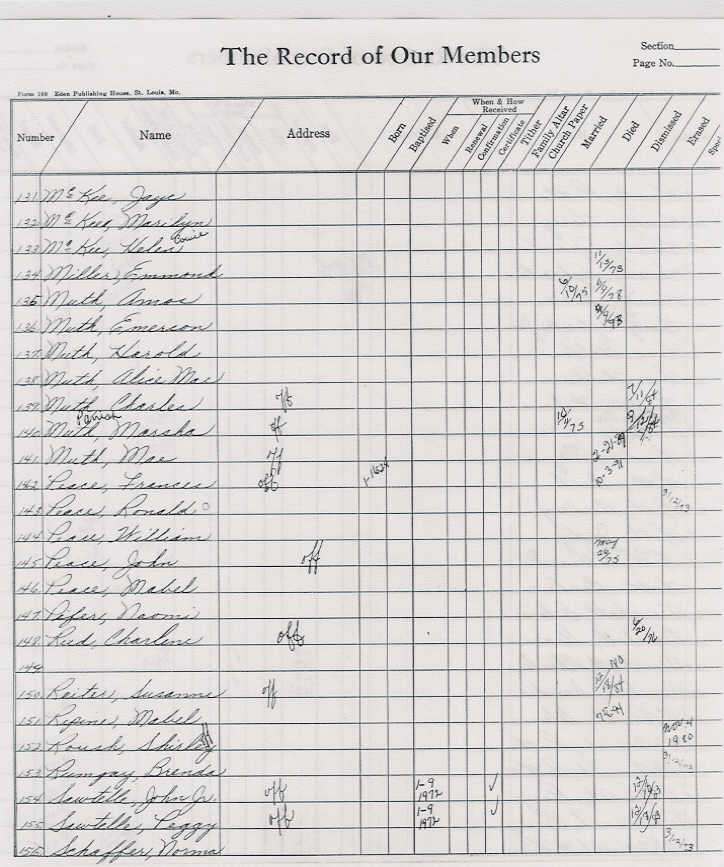 The Record of Our Members
Section
Page No.
Form 100 Eden Publishing House, St. Louis, Mo.
Number Name Address Born Baptised When & How Received When Renewal Confirmation Certificate Tither Family Altar Church Paper Married Died Dismissed Erased
131 McKee, Jaye
132 McKee, Marilyn
133 McKee, Helen
134 Miller, Emmond 11/13/73
135 Muth, Amos 6/10/75
136 Muth, Emerson
137 Muth, Harold
138 Muth, Alice Mae
139 Muth, Charles off
Parish
140 Muth, Marsha off 10/4/75
141 Muth, Mae off
142 Peace, Frances off
143 Peace, Ronald 3/12/73
144 Peace, William
145 Peace, John off May 24/75
146 Peace, Mabel
147 Pifer, Naomi
148 Reed, Charlene off 6/20/76
149
150 Reiter, Susanne off
151 Repine, Mabel
152 Roush, Shirley Nov 4 1980
153 Rumgay, Brenda 3/12/73
154 Sawtelle, John Jr. off 1-9 1972 ✓
155 Sawtelle, Peggy off 1-9 1972 ✓
156 Schaffer, Norma 3/12/73